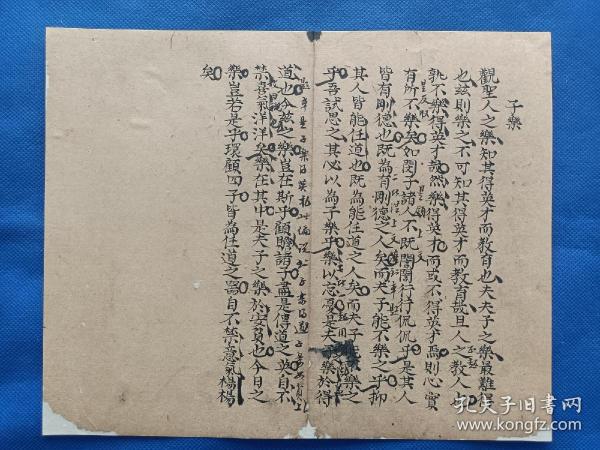 子樂
觀聖人之樂知其得英才而教育也夫夫子之樂最難
也玆則樂之不可知其得英才而教育哉且人之教人也
孰不樂得英才哉然樂得英才而或不得英才焉則心實
有所不樂矣如閔子諸人不既誾誾行行侃侃乎是其人
皆有剛德也既為有剛德之人矣而夫子能不樂之乎抑
其人皆能任道也既為能任道之人矣而夫子樂之
乎吾試思之其必以為子樂乎樂以忘憂是夫子樂於得
道也今玆之樂豈在斯乎顧瞻諸子盡是傳道之英自不
禁喜氣洋洋矣樂在其中是夫子之樂於安貧也今日之
樂豈若是乎環顧四子皆為任道之器自不禁意氣楊楊
矣
孔夫子旧书网
www.kongfz.com